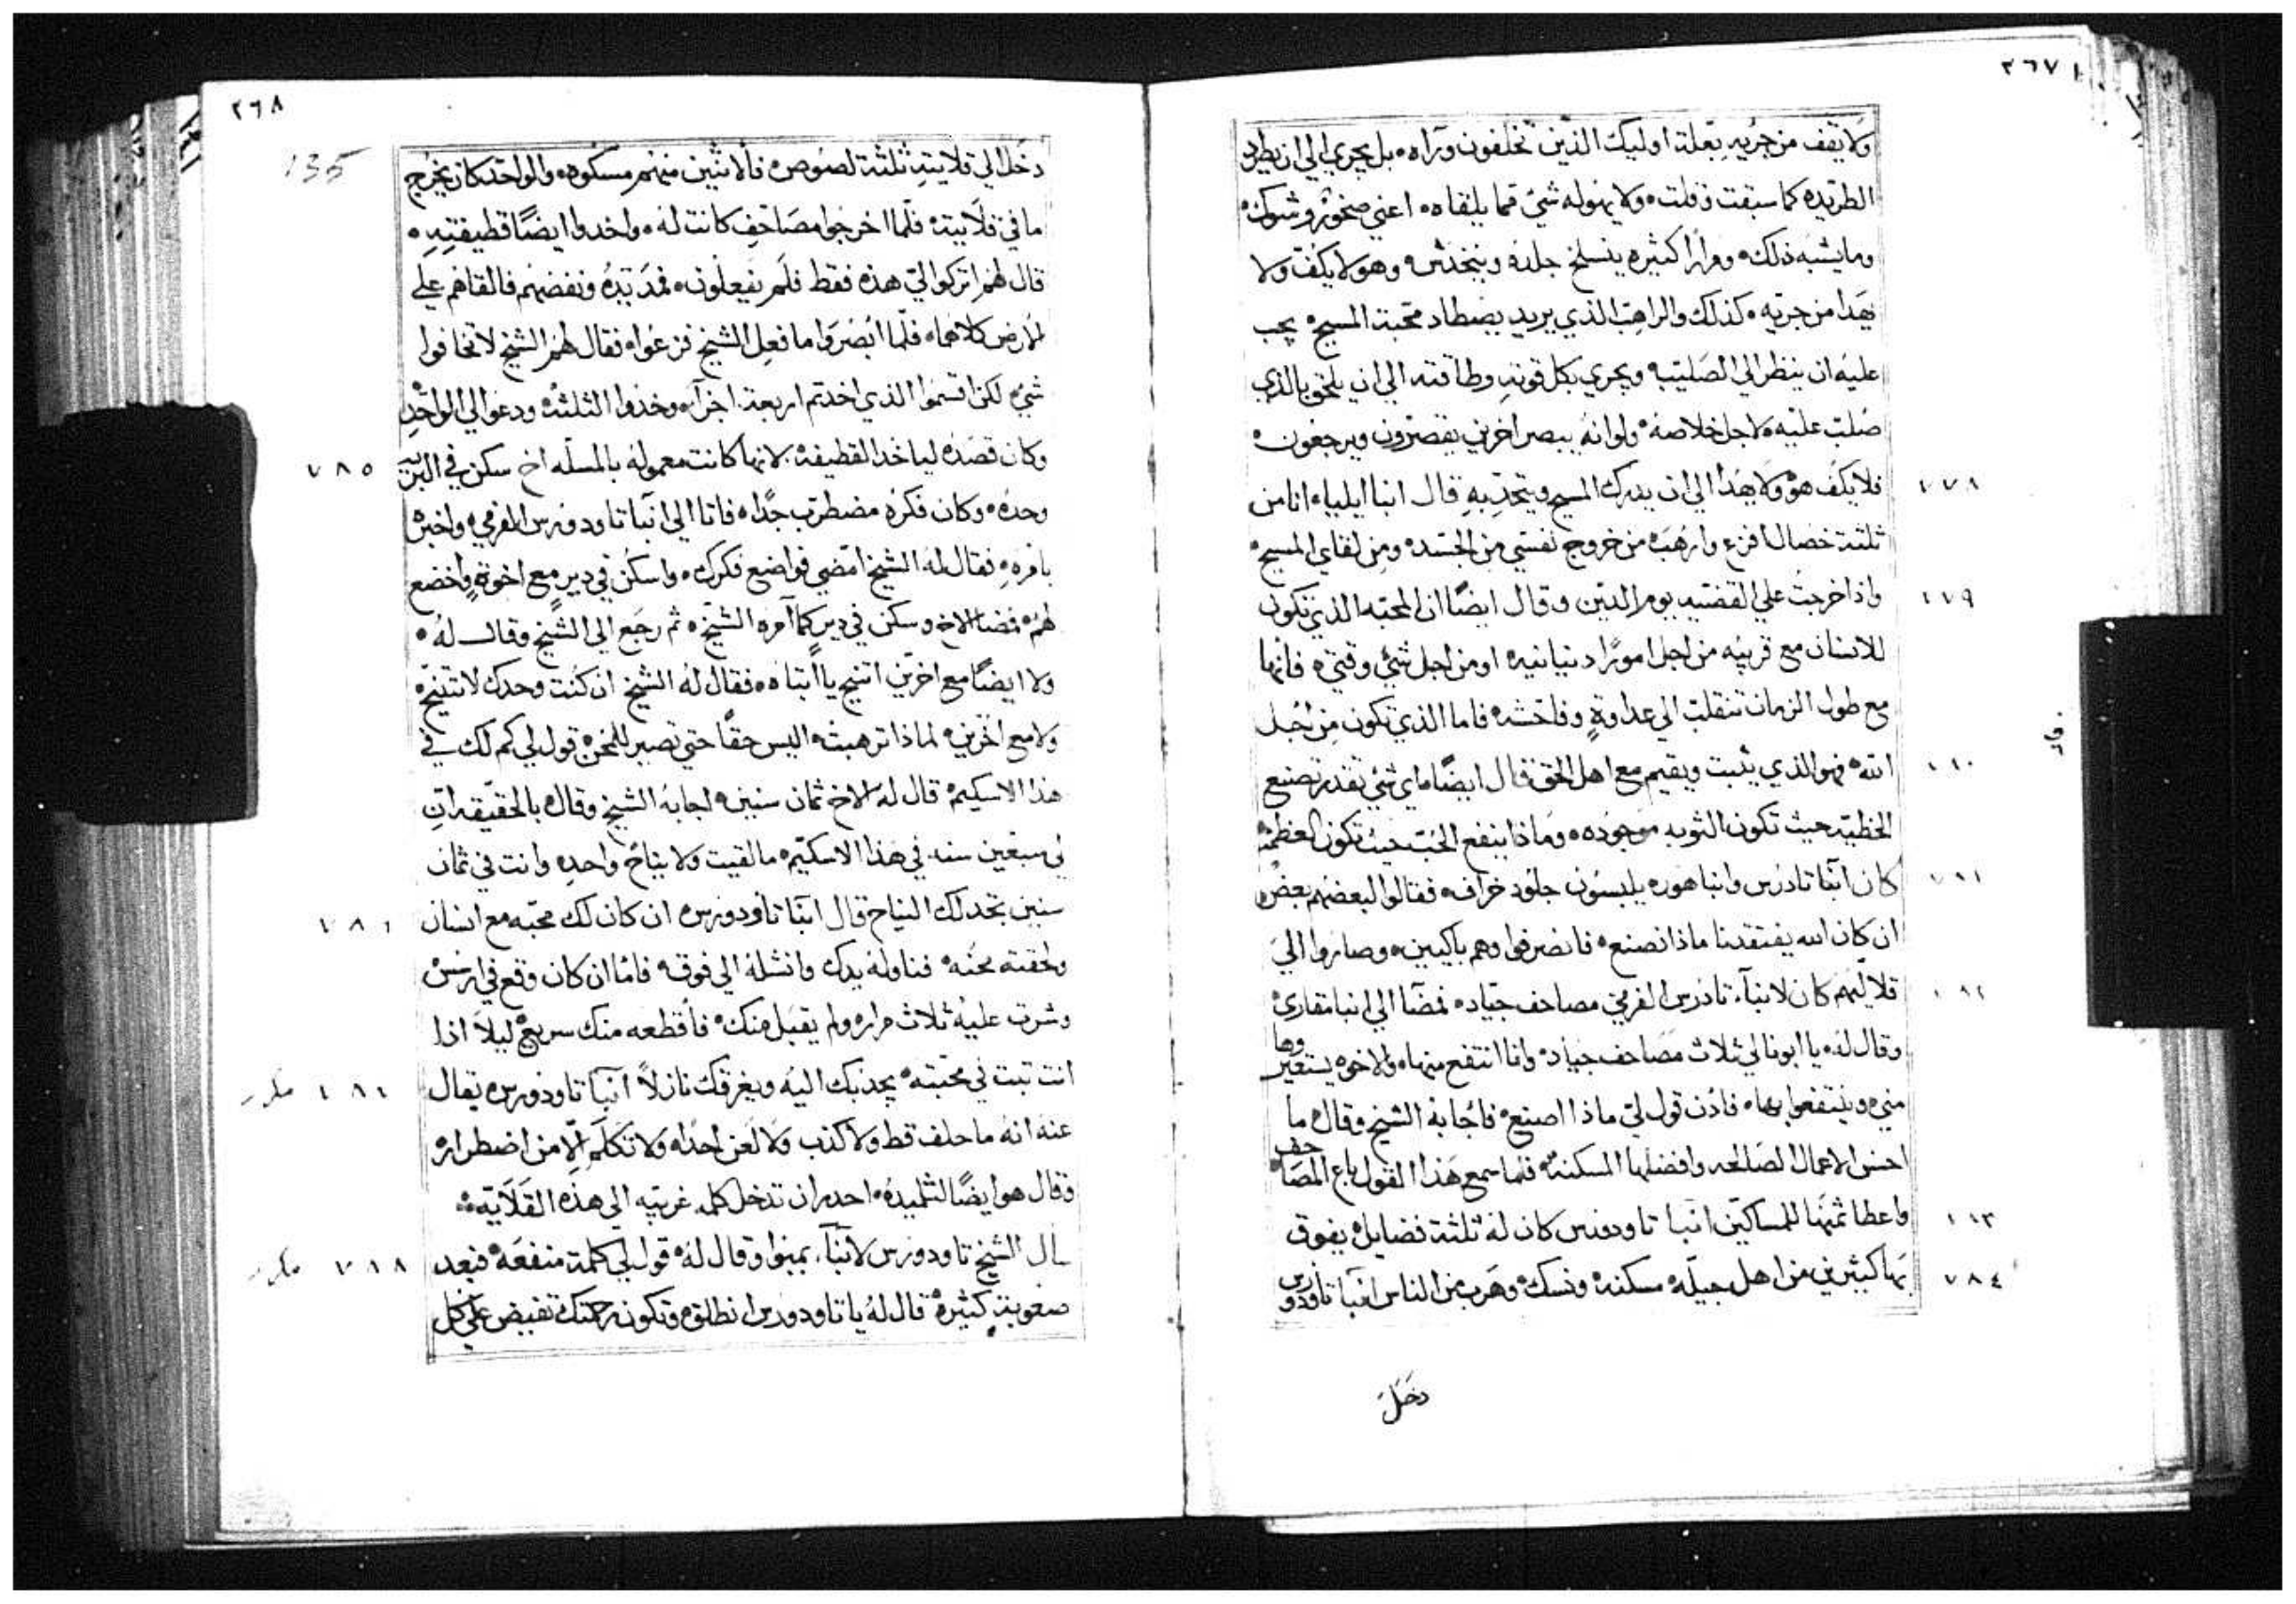 ٢٦٧
ولا يقف من جريه بعلة اوليك الذين تخلفون وراه بل يجري الي ان يطرد
الطريده كما سبقت وقلت ولا يهوله شي مما يلقاه اعني صخور وشوك
وما يشبه ذلك ومرارا كثيره ينسلخ جلده ويتخدش وهو لا يكف ولا
يهدا من جريه كذلك والراهب الذي يريد يصطاد محبة المسيح يجب
عليه ان ينظر الي الصليب ويجري بكل قوته وطاقته الي ان يلحق بالذي
صلب عليه لاجل خلاصه ولو انه يبصر اخرين يقصرون ويرجعون
فلا يكف هو ولا يهدا الي ان يدرك المسيح ويتحد به قال انبا ايلياء انا من
٧٧٨
ثلثة خصال افزع وارهب من خروج نفسي من الجسد ومن لقاي المسيح
واذا خرجت علي القضيه يوم الدين وقال ايضا ان المحبه الذي تكون
٧٧٩
للانسان مع قريبه من اجل امورا دنيانيه او من اجل شي وقتي فانها
مع طول الزمان تنقلب الي عداوة وفاحشه فاما الذي تكون من اجل
الله فهو الذي يثبت ويقيم مع اهل الحق قال ايضا ما اي شي تقدر تصنع
الخطيه حيث تكون التوبه موجوده وماذا ينفع الحب حيث تكون العظمه
كان انبا تادرس وانبا هوره يلبسون جلود خراف فقالوا لبعضهم بعض
ان كان الله يفتقدنا ماذا نصنع فانصرفوا وهم باكيين وصاروا الي
قلاليهم كان لانبا تادرس الفرمي مصاحف جياد فمضا الي انبا مقاري
وقال له يا ابونا لي ثلاث مصاحف جياد وانا انتفع منها والاخوه يستعيروها
مني وينتفعوا بها فاذن قول لي ماذا اصنع فاجابه الشيخ وقال ما
احسن الاعمال الصالحه وافضلها المسكنه فلما سمع هذا القول باع المصاحف
واعطا ثمنها للمساكين انبا تاودورس كان له ثلثة فضايل يفوق
بها كثيرين من اهل جيله مسكنه ونسك وهرب من الناس انبا تاودورس
٧٨٤
دخل
٢٦٨
135
دخل الي قلايته ثلثة لصوص فالاثنين منهم مسكوه والواحد كان يخرج
ما في قلايته فلما اخرجوا مصاحف كانت له واخدوا ايضا قطيفته
قال لهم اتركوا لي هذه فقط فلم يفعلون فمد يده ونفضهم فالقاهم علي
الارض كلاهما فلما ابصروا ما فعل الشيخ فزعوا فقال لهم الشيخ لا تخافوا
شي لكن اقسموا الذي اخدتم اربعة اجزا وخذوا الثلثة ودعوا لي الواحد
وكان قصده لياخد القطيفه لانها كانت معموله بالمسله اخ سكن في البريه
٧٨٥
وحده وكان فكره مضطرب جدا فاتا الي انبا تاودورس الفرمي واخبره
بامره فقال له الشيخ امضي فواضع فكرك واسكن في دير مع اخوة واخضع
لهم فمضا الاخ وسكن في دير كما امره الشيخ ثم رجع الي الشيخ وقال له
ولا ايضا مع اخرين اتنيح يا ابتاه فقال له الشيخ ان كنت وحدك لا تتنيح
ولا مع اخرين لماذا ترهبت اليس حقا حتي تصبر للحزن قول لي كم لك في
هذا الاسكيم قال له الاخ ثمان سنين اجابه الشيخ وقال بالحقيقه ان
لي سبعين سنه في هذا الاسكيم ما لقيت ولا يناح واحد وانت في ثمان
سنين تجد لك النياح قال انبا تاودورس ان كان لك محبه مع انسان
ولحقته محنه فناوله يدك وانشله الي فوق فاما ان كان وقع في ارسس
وشرت عليه ثلاث مرار ولم يقبل منك فاقطعه منك سريع ليلا اذا
انت ثبت في محبته يجذبك اليه ويغرقك نازلا انبا تاودورس يقال
مكرر
عنه انه ما حلف قط ولا كذب ولا لعن احدا ولا تكلم الا من اضطرار
وقال هو ايضا لتلميذه احدر ان تدخل كلمه غريبه الي هذه القلايه
ـال الشيخ تاودورس لانبا بمبوا وقال له قول لي كلمة منفعه فبعد
مكرر
صعوبة كثيره قال له يا تاودورس انطلق وتكون رحمتك تفيض علي كل